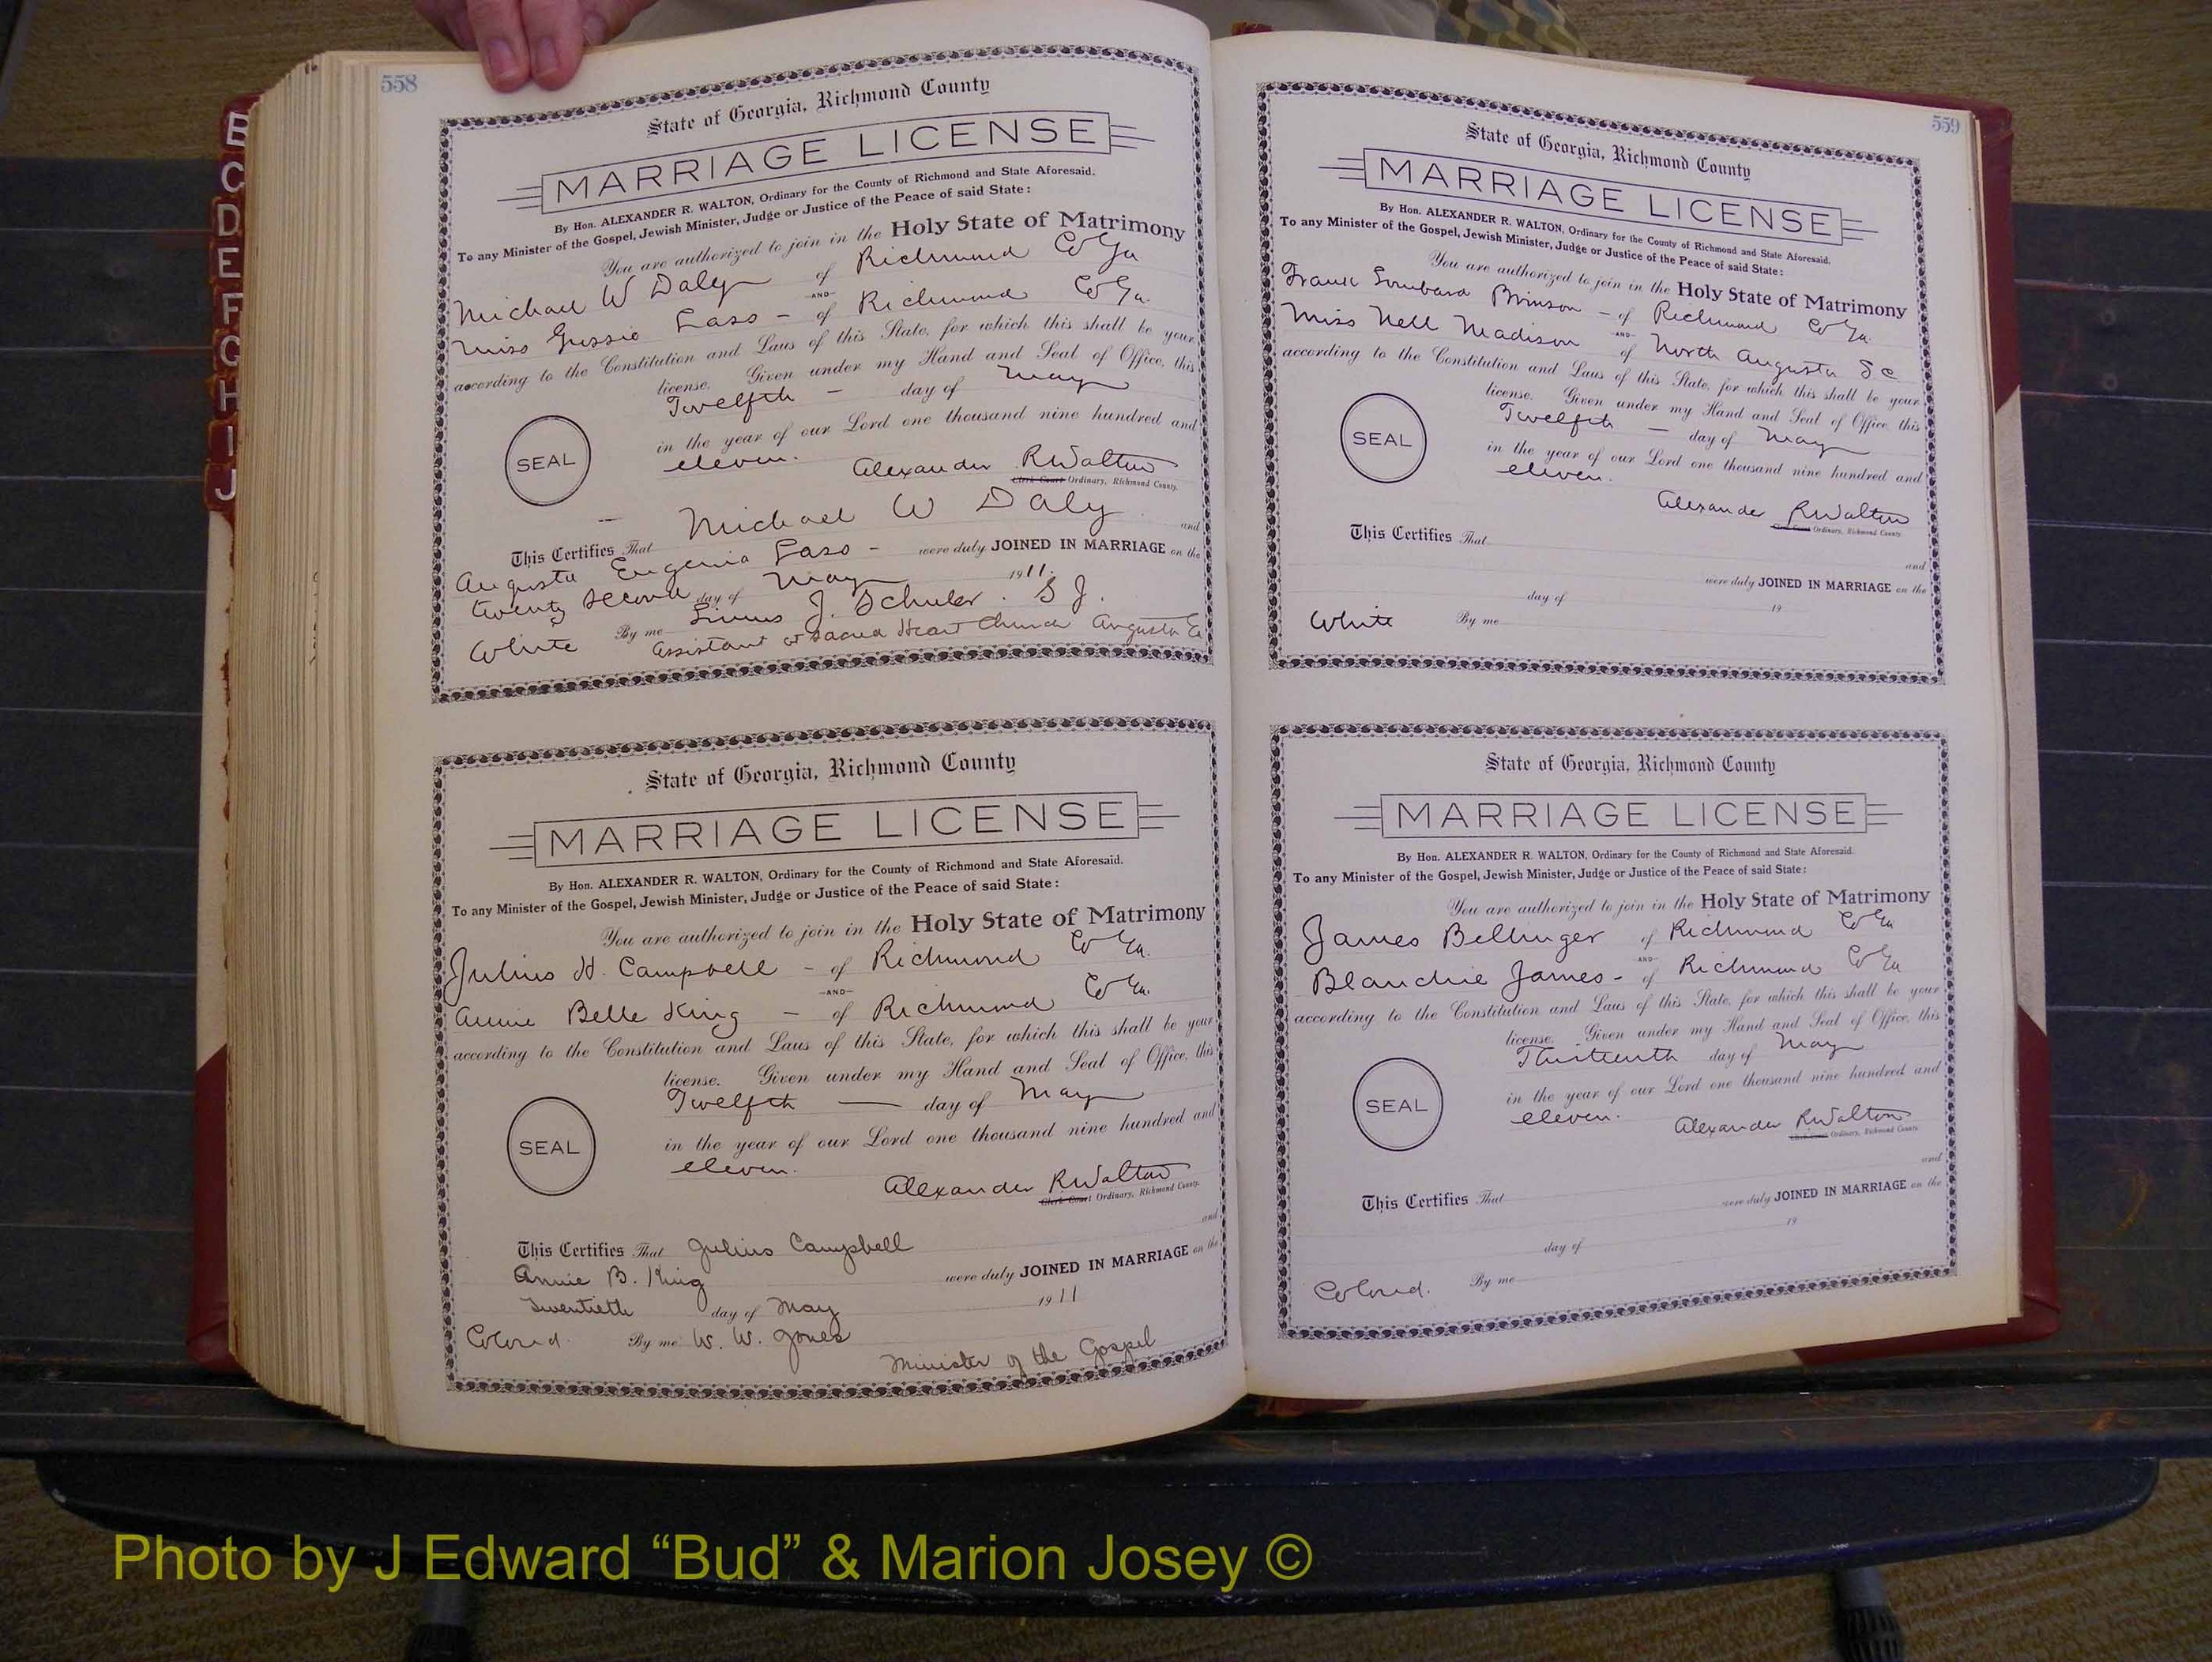 B
C
D
E
F
G
H
I
J
558
State of Georgia, Richmond County
MARRIAGE LICENSE
By Hon. ALEXANDER R. WALTON, Ordinary for the County of Richmond and State Aforesaid.
To any Minister of the Gospel, Jewish Minister, Judge or Justice of the Peace of said State:
You are authorized to join in the Holy State of Matrimony
Michael W Daly of Richmond Co Ga
-AND-
Miss Gussie Laso - of Richmond Co Ga.
according to the Constitution and Laws of this State, for which this shall be your
license. Given under my Hand and Seal of Office, this
Twelfth - day of May
in the year of our Lord one thousand nine hundred and
eleven.
SEAL
Alexander R Walton
Clerk Court Ordinary, Richmond County.
This Certifies That Michael W Daly and
Augusta Eugenia Laso - were duly JOINED IN MARRIAGE on the
twenty second day of May 1911.
White By me J. Schuler. S J.
Assistant at Sacred Heart Church Augusta Ga
State of Georgia, Richmond County
MARRIAGE LICENSE
By Hon. ALEXANDER R. WALTON, Ordinary for the County of Richmond and State Aforesaid.
To any Minister of the Gospel, Jewish Minister, Judge or Justice of the Peace of said State:
You are authorized to join in the Holy State of Matrimony
Julius H. Campbell - of Richmond Co Ga.
-AND-
Annie Belle King - of Richmond Co Ga.
according to the Constitution and Laws of this State, for which this shall be your
license. Given under my Hand and Seal of Office, this
Twelfth - day of May
in the year of our Lord one thousand nine hundred and
eleven.
SEAL
Alexander R Walton
Clerk Court Ordinary, Richmond County.
This Certifies That Julius Campbell and
Annie B. King were duly JOINED IN MARRIAGE on the
Twentieth day of May 1911
Colored By me W. W. Jones
Minister of the Gospel
559
State of Georgia, Richmond County
MARRIAGE LICENSE
By Hon. ALEXANDER R. WALTON, Ordinary for the County of Richmond and State Aforesaid.
To any Minister of the Gospel, Jewish Minister, Judge or Justice of the Peace of said State:
You are authorized to join in the Holy State of Matrimony
Frank Lombard Brinson - of Richmond Co Ga.
-AND-
Miss Nell Madison of North Augusta S.C
according to the Constitution and Laws of this State, for which this shall be your
license. Given under my Hand and Seal of Office, this
Twelfth - day of May
in the year of our Lord one thousand nine hundred and
eleven.
SEAL
Alexander R Walton
Clerk Court Ordinary, Richmond County.
This Certifies That and
were duly JOINED IN MARRIAGE on the
day of 19
White By me
State of Georgia, Richmond County
MARRIAGE LICENSE
By Hon. ALEXANDER R. WALTON, Ordinary for the County of Richmond and State Aforesaid.
To any Minister of the Gospel, Jewish Minister, Judge or Justice of the Peace of said State:
You are authorized to join in the Holy State of Matrimony
James Bellinger of Richmond Co Ga
-AND-
Blanchie James - of Richmond Co Ga
according to the Constitution and Laws of this State, for which this shall be your
license. Given under my Hand and Seal of Office, this
Thirteenth day of May
in the year of our Lord one thousand nine hundred and
eleven.
SEAL
Alexander R Walton
Clerk Court Ordinary, Richmond County.
This Certifies That and
were duly JOINED IN MARRIAGE on the
day of 19
Colored. By me
Photo by J Edward “Bud” & Marion Josey ©